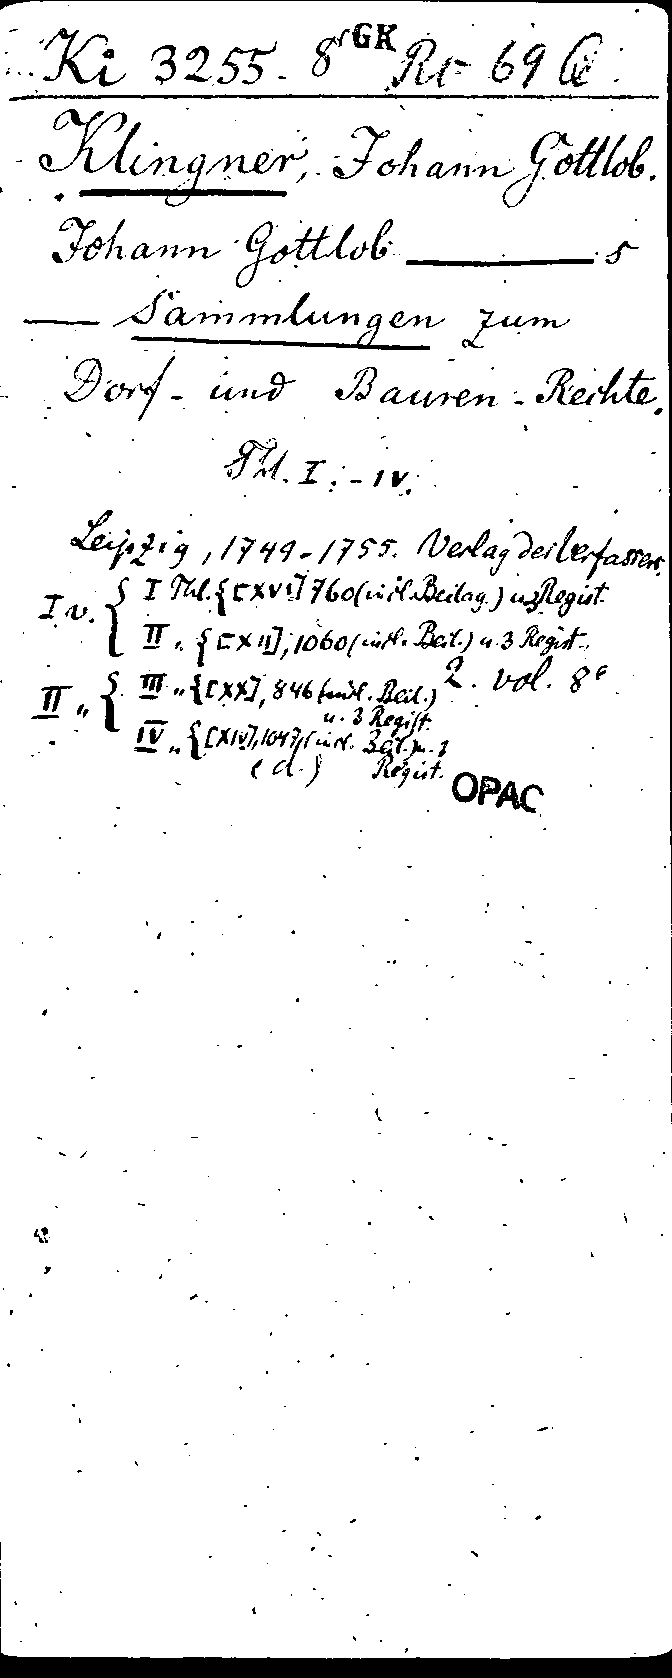 Ki 3255. 8° GK Rr 69
Klingner, Johann Gottlob.
Johann Gottlob ——— s
— Sammlungen zum
Dorf- und Bauren-Rechte.
Thl. I. - IV.
Leipzig, 1749-1755. Verlag des Verfassers.
I v. { I Thl. { [XVI] 760 (inkl. Beilag.) u 3 Regist.
II „ { [XII], 1060 (inkl. Beil.) u. 3 Regist.
II „ { III „ { [XX], 846 (inkl. Beil.) 2. vol. 8°
u. 3 Regist.
IV „ { [XIV], 1047, (inkl. Beil.) u. 3
(d.) Regist.
OPAC